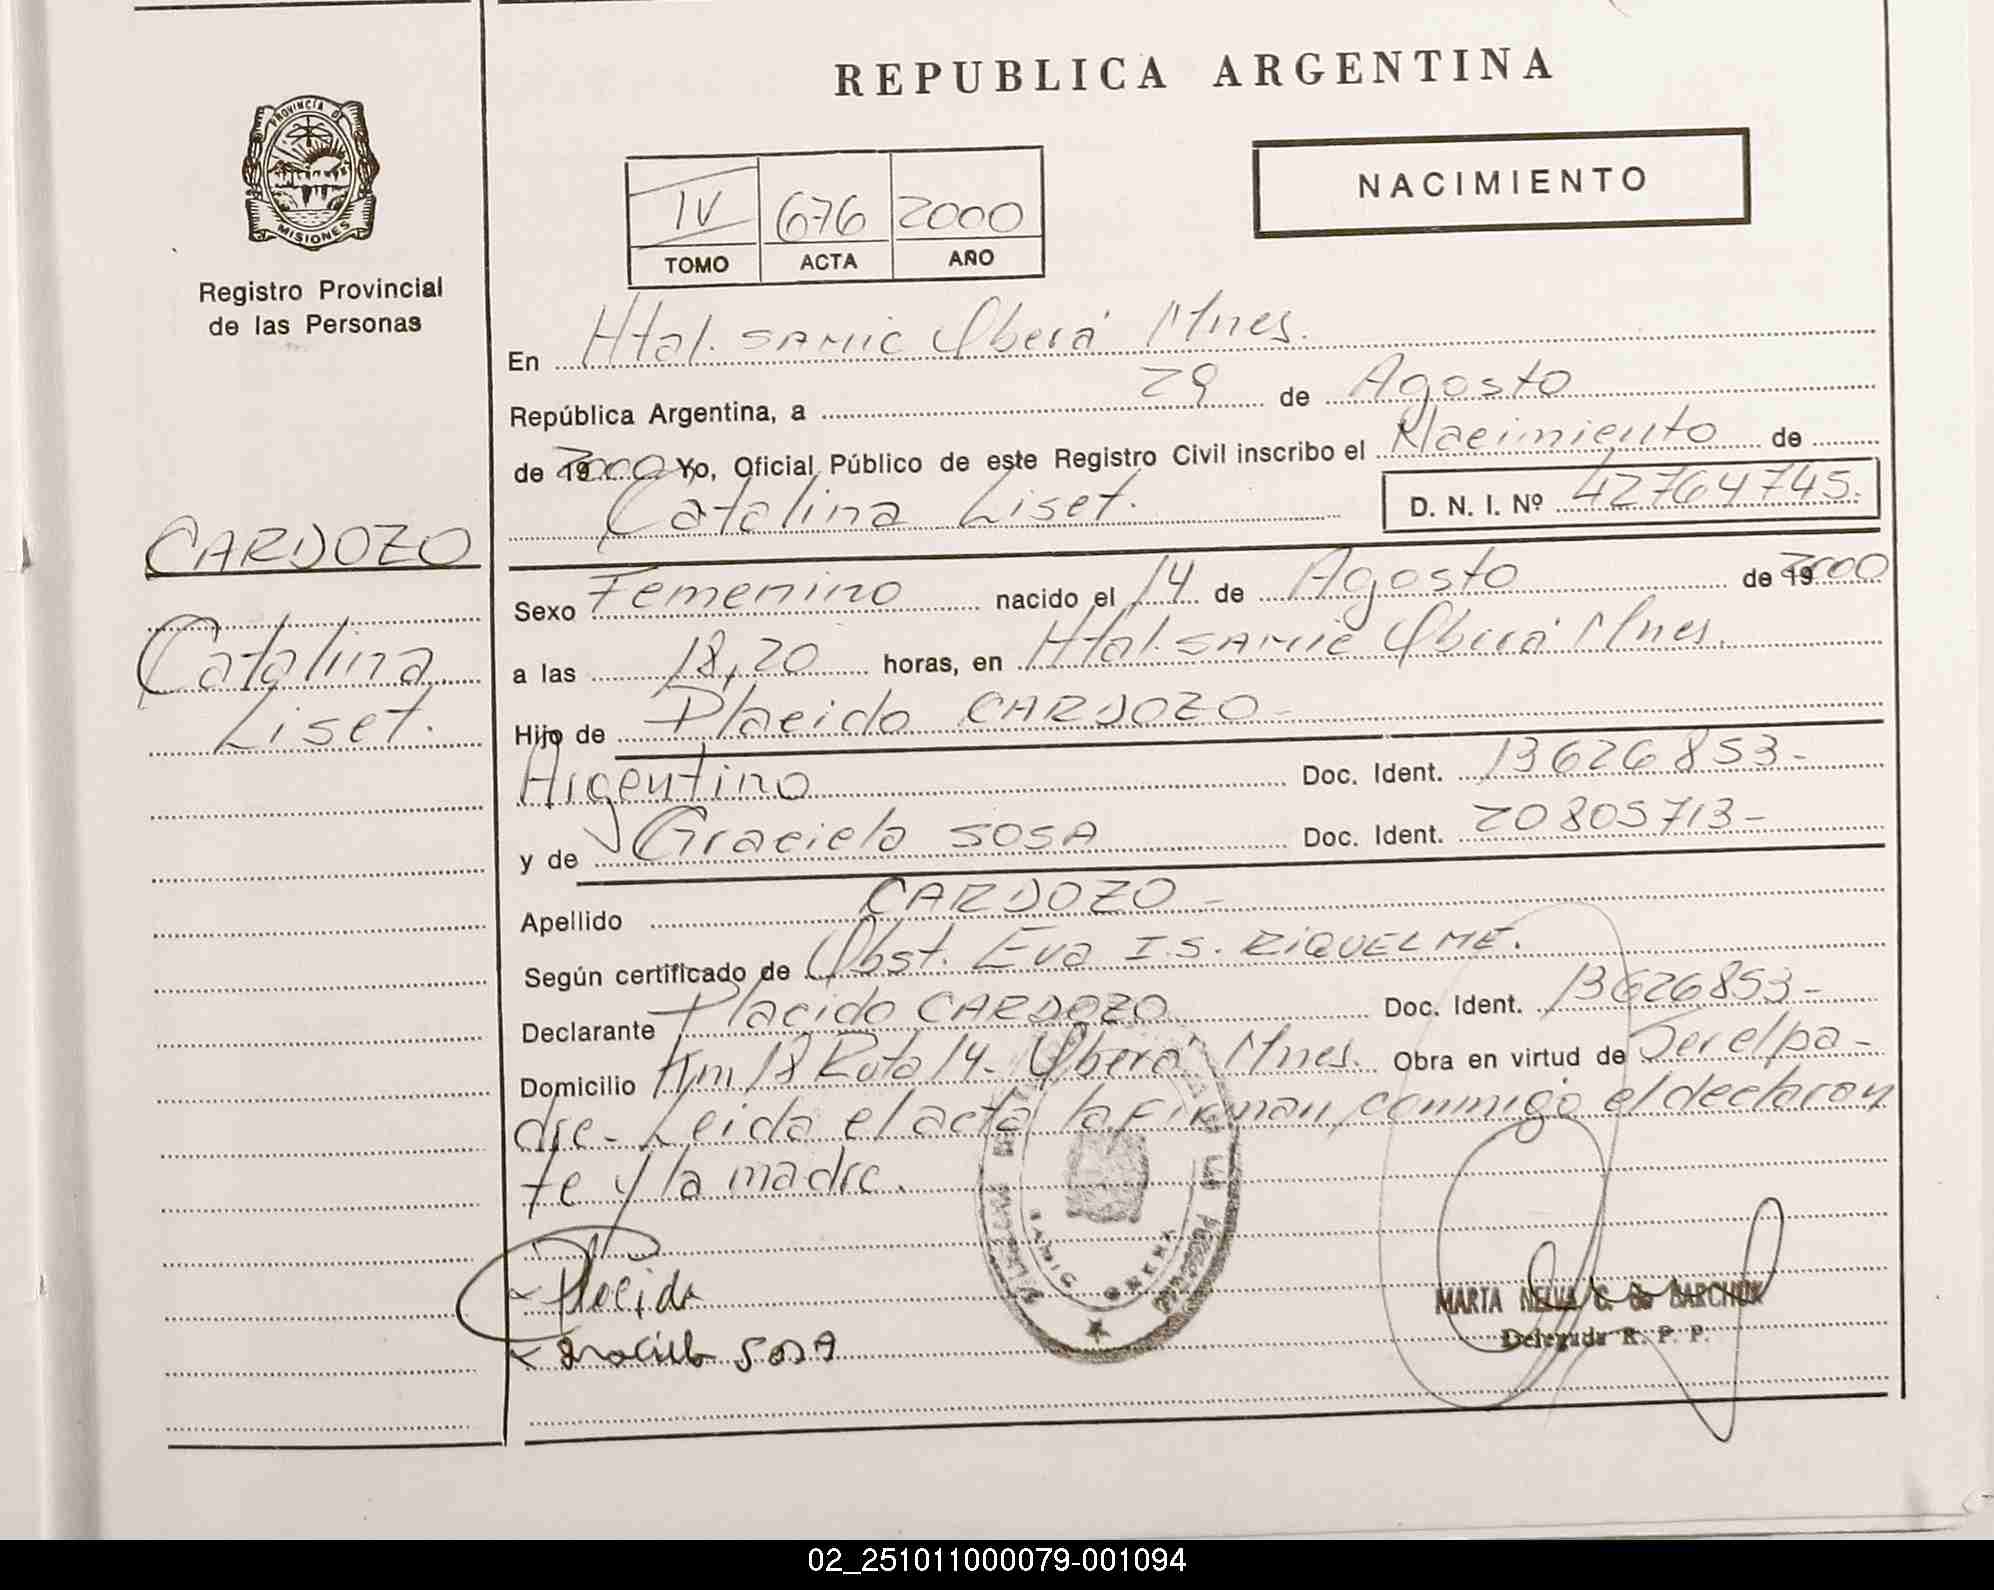 REPUBLICA ARGENTINA
PROVINCIA DE
MISIONES
Registro Provincial
de las Personas
IV 676 2000
TOMO ACTA AÑO
NACIMIENTO
En Htal. SAMIC Oberá Mnes.
República Argentina, a 29 de Agosto
de 2000 Yo, Oficial Público de este Registro Civil inscribo el Nacimiento de
Catalina Liset. D. N. I. Nº 42764745.
CARDOZO
Catalina
Liset.
Sexo Femenino nacido el 14 de Agosto de 2000
a las 18,20 horas, en Htal. SAMIC Oberá Mnes.
Hijo de Placido CARDOZO-
Argentino Doc. Ident. 13626853-
y de Graciela SOSA Doc. Ident. 20805713-
Apellido CARDOZO-
Según certificado de Obst. Eva I.S. RIQUELME.
Declarante Placido CARDOZO Doc. Ident. 13626853-
Domicilio Km 18 Ruta 14- Oberá Mnes. Obra en virtud de Ser el pa-
dre- Leida el acta la firman conmigo el declaran
te y la madre.
SAMIC OBERA
Placido
Graciela SOSA
MARTA NELVA C. de BARCHUK
Delegada R. P. P.
02_251011000079-001094